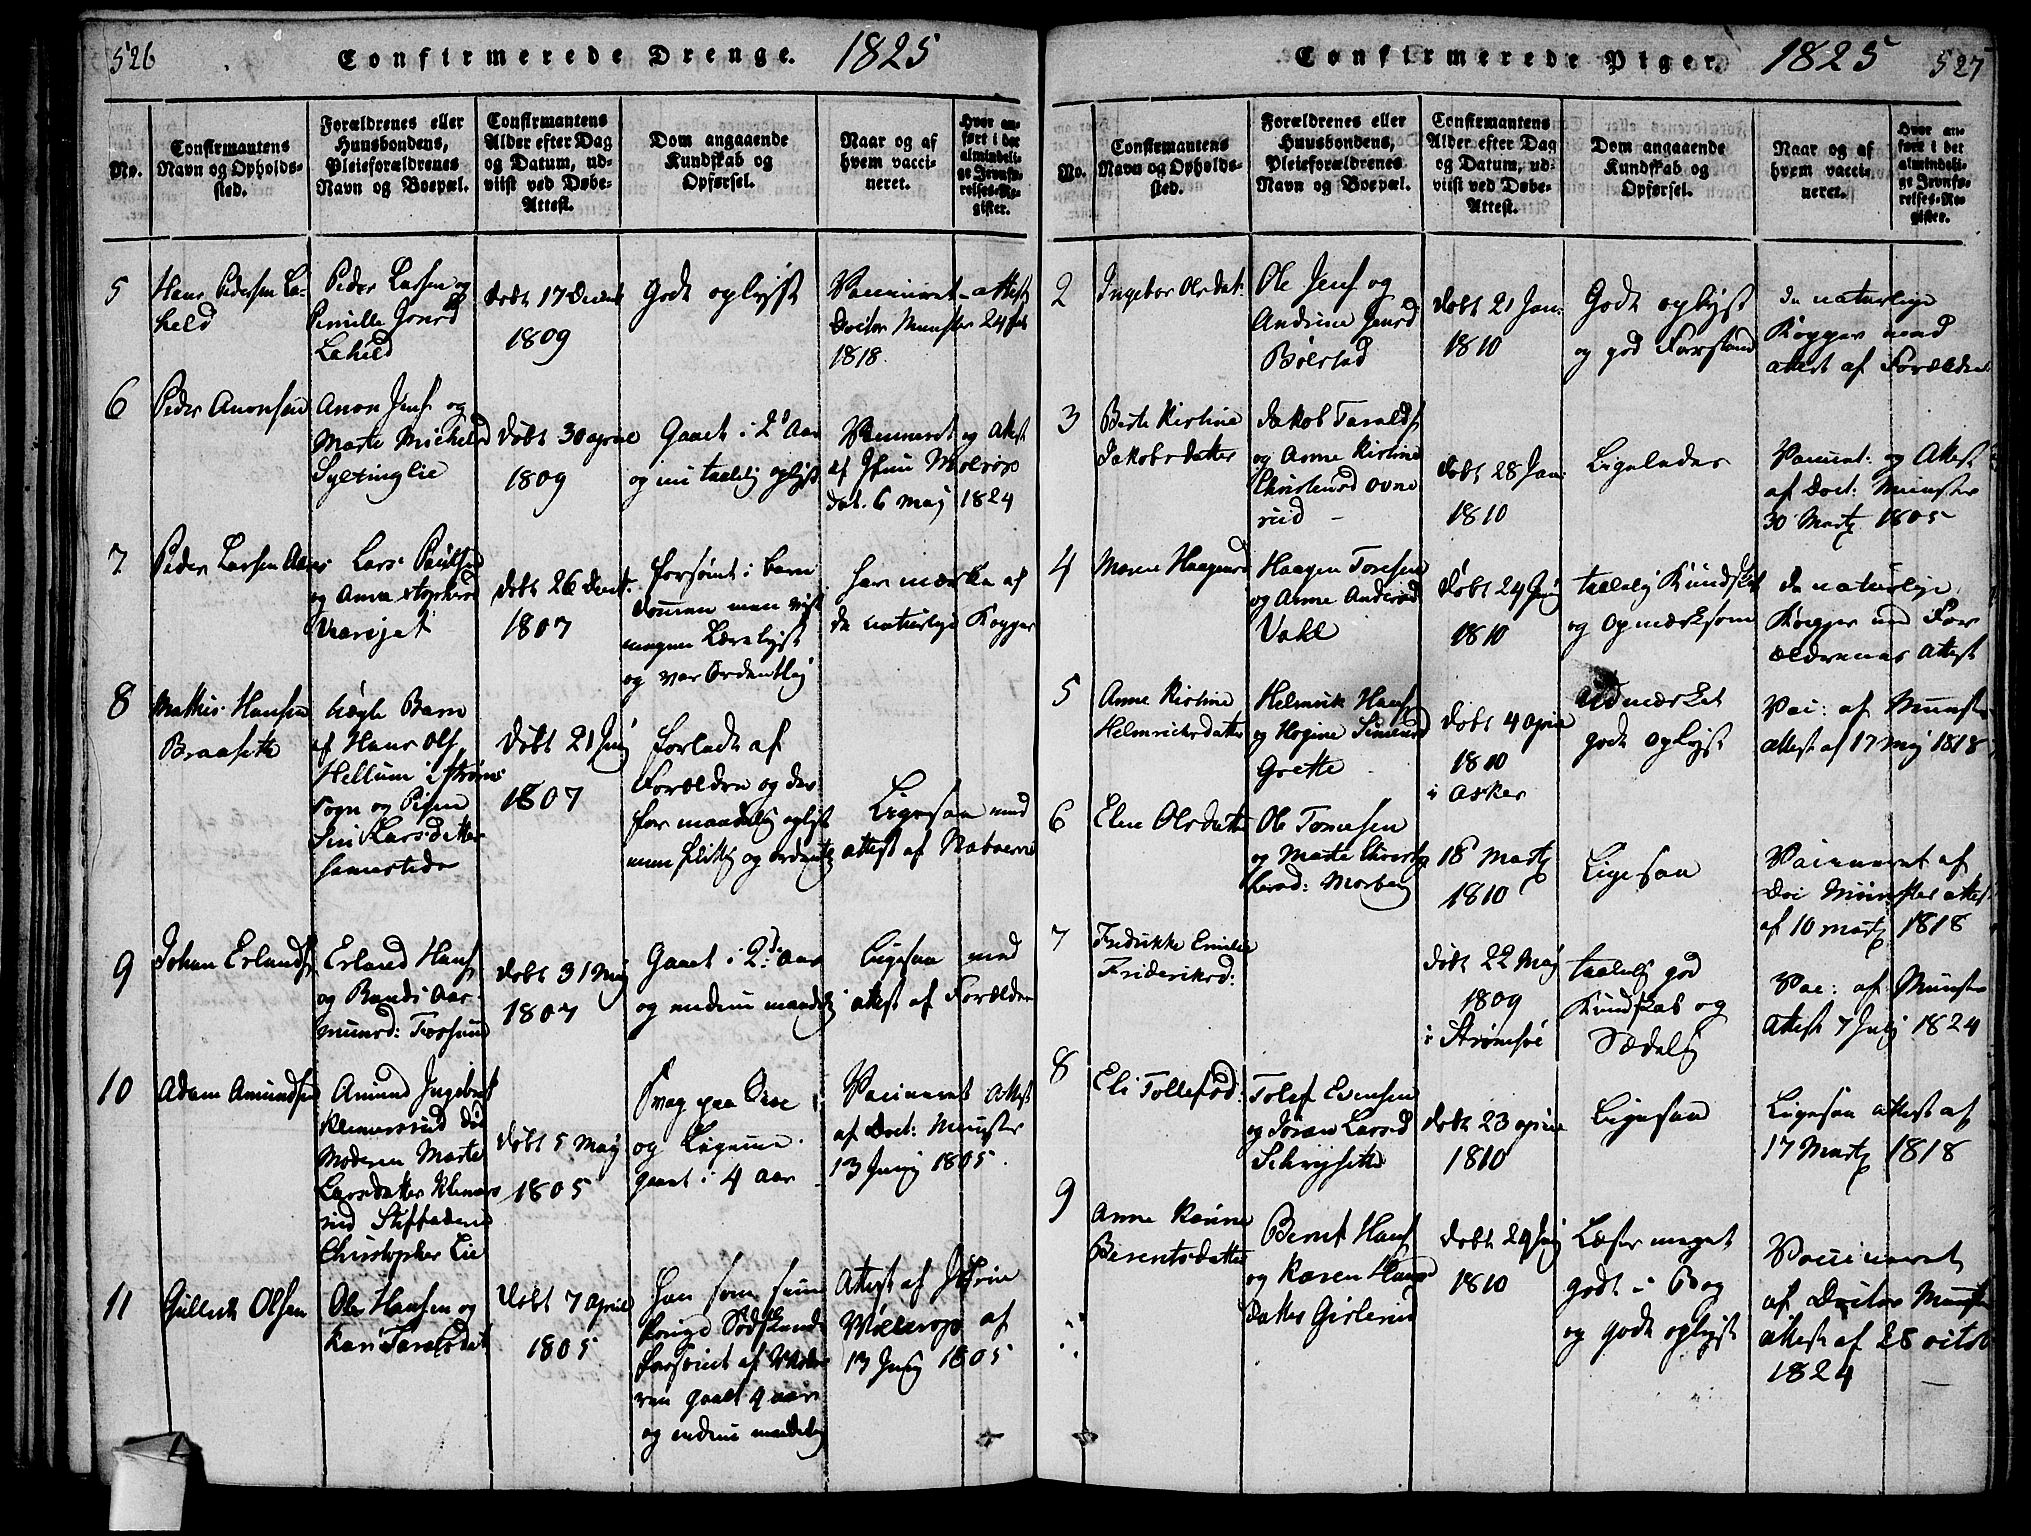 526
Confirmerede Drenge. 1825
No.
Confirmantens
Navn og Opholds-
sted.
Forældrenes eller
Huusbondens,
Pleieforældrenes
Navn og Boepæl.
Confirmantens
Alder efter Dag
og Datum, ud-
viist ved Døbe-
Attest.
Dom angaaende
Kundskab og
Opførsel.
Naar og af
hvem vacci-
neret.
Hvor an-
ført i det
almindeli-
ge Jevnfø-
relses-Re-
gister.
5
Hans Pedersen La-
held
Peder Larsen og
Pernille Jonsd
Lahild
døbt 17 Decemb
1809
Godt oplyst
Vaccineret - attest
Doctor Munster 24 feb
1818.
6
Peder Anonsen
Anon Jens og
Marte Michelsd
Sylringlie
døbt 30 april
1809
Gaaet i 2d Aar
og taalelig oplyst
Vaccineret og Attest
af
dat. 6 Maj 1824
7
Peder Larsen
Lars Paulsen
og Anna
døbt 26 Decbr.
1807
forsømt i barn
dommen men vist
megen Lærelyst
og var Ordentlig
har mærke af
de naturlige Kopper
8
Mathis Hansen
Braasette
Uægte Barn
af Hans Ols
Hellum i Strøms
sogn og Pigen
Siri Larsdatter
sammestede
døbt 21 Junj
1807
forladt af
Forældre og der
for maadelig oplyst
men flittig og ordentlig
Ligesaa med
attest af Naboerne
9
Johan Erlands
Erland Hans
og Randi Aa-
munsd: Fossum
døbt 31 Maj
1807
Gaaet i 2d Aar
og endnu maadelig
Ligesaa med
attest af Forældre
10
Adam Amundsen
Amund Ingebret
Klemersrud død
Moderen Marte
Larsdatter Klemers
rud Stiffaderen
Christopher Lie
døbt 5 Maj
1805
Svag paa Siel
og Legeme.
gaaet i 4 aar
Vaccineret Attest
af Doct: Munster
13 Junj 1805.
11
Gullich Olsen
Ole Hansen og
Kari Taralsdat
døbt 7 april
1805
han som sine
øvrige Sødskende
forsømt af
gaaet 4 aar
og endnu maadelig
Attest af
af
13 Junj 1805
Confirmerede Piger. 1825 527
No.
Confirmantens
Navn og Opholds-
sted.
Forældrenes eller
Huusbondens,
Pleieforældrenes
Navn og Boepæl.
Confirmantens
Alder efter Dag
og Datum, ud-
viist ved Døbe-
Attest.
Dom angaaende
Kundskab og
Opførsel.
Naar og af
hvem vacci-
neret.
Hvor an-
ført i det
almindeli-
ge Jevnfø-
relses-Re-
gister.
2
Ingebor Olsdat:
Ole Jens og
Andrine Jensd
Bølstad
døbt 21 Jan:
1810
Godt oplyst
og god Forstand
de naturlige
Kopper med
attest af Forældre
3
Berte Kirstine
Jakobsdatter
Jakob Taralds
og Anne Kirstine
Christensd Ovne
rud -
døbt 28 Jan:
1810
Ligeledes
Vaccinet: og Attest
af Doct: Munster
30 Martz 1805
4
Maren Haagensd
Haagen Toresen
og Anne Andersd
døbt 24 Junj
1810
taalelig Kundskab
og Opmærksom
de naturlige
Kopper med For
ældrenes Attest
5
Anne Kirstine
Helmrichsdatter
Helmrik Hans
og Hogine Simensd
Grette
døbt 4 april
1810
i Asker
Udmærket
godt oplyst
Vac: af Munster
attest af 17 Maj 1818
6
Elen Olsdatter
Ole Tomesen
og Marte
18 Martz
1810
Ligesaa
Vaccineret af
Doc Munster attest
af 10 martz 1818
7
Fredrikke Emilie
Frideriksd:
døbt 22 Maj
1809
i Strømsøe
taalelig god
Kundskab og
Sædelig
Vac: af Munster
Attest 7 Julj 1824
8
Eli Tollefsd:
Tolef Evensen
og Joran Larsd
døbt 23 april
1810
Ligesaa
Ligesaa attest af
17 Martz 1818
9
Anne Karine
Berentsdatter
Bernt Hans
og Karen Hans
datter Gislerud
døbt 29 Junj
1810
Læser meget
godt i Bog
og godt oplyst
Vaccineret
af Doctor Munster
attest af 28 octob
1824